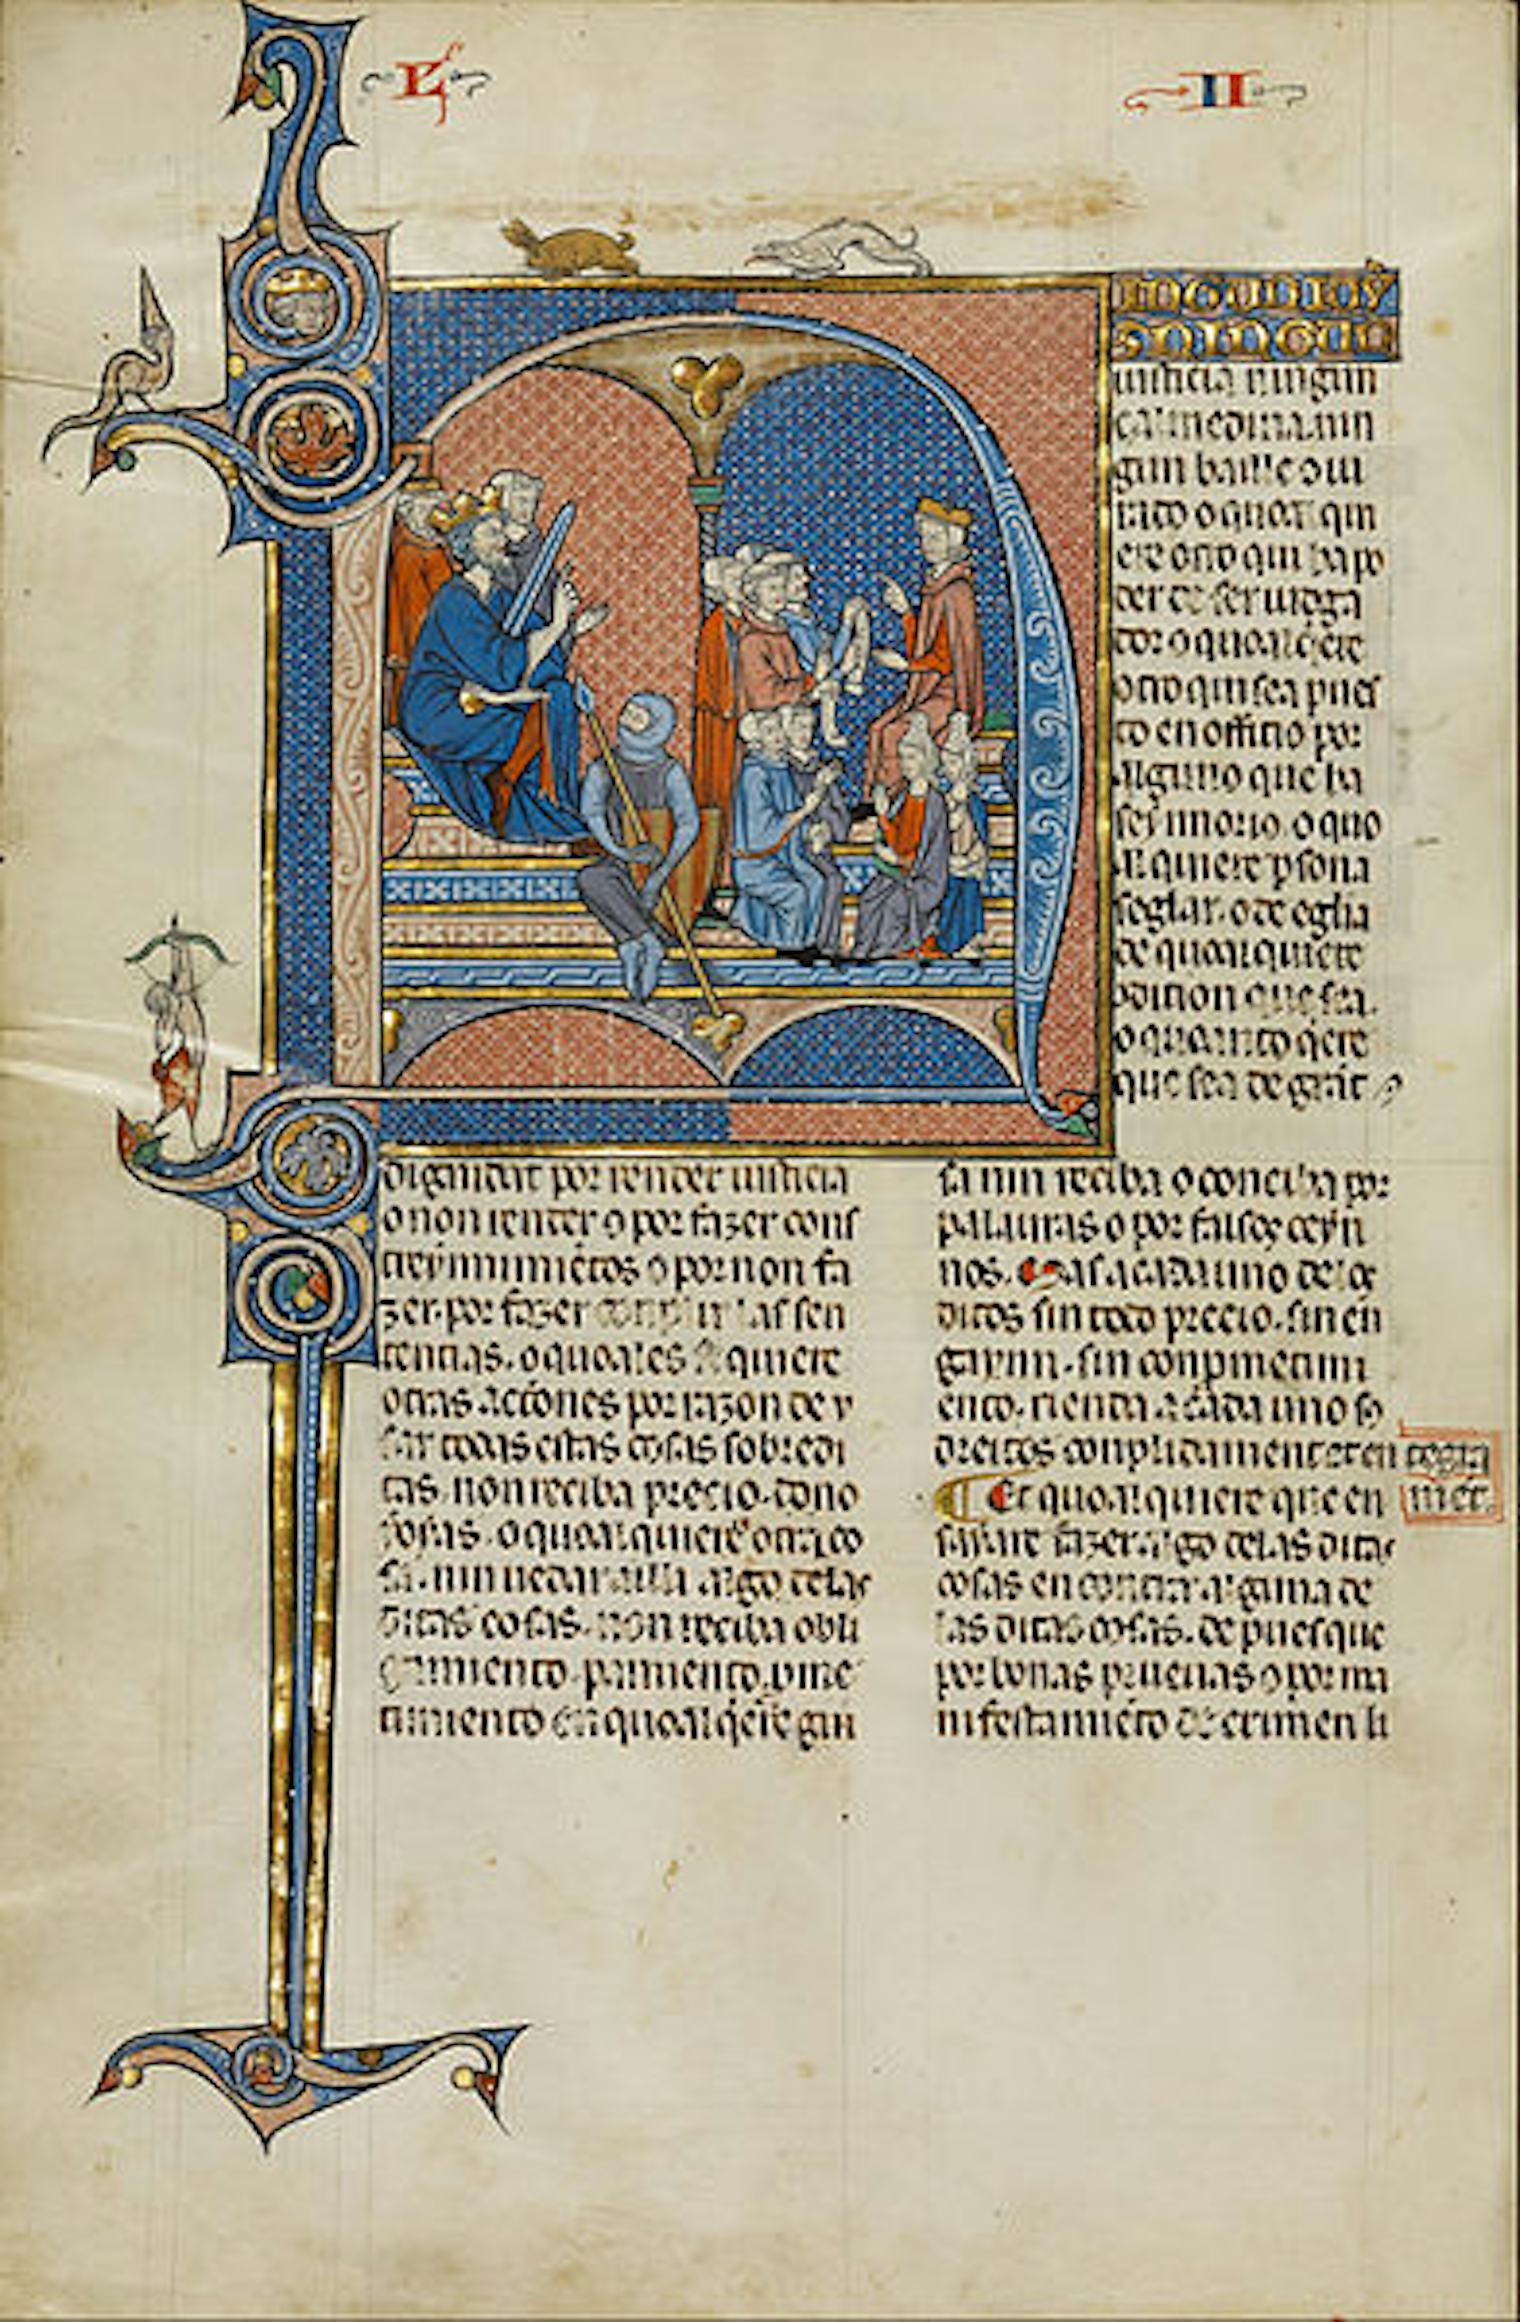 L II
iusticia ningun
çalmedina. nin
gun bayle o iu
rado o qual qui
ere otro qui ha po
der de ser iudga
dor o qual q̇ere
otro qui sea pues
to en officio por
alguno que ha
seynnorio. o quo
al quiere psona
seglar. o de eglia
de qual quiere
ꝯdition que sea.
o quanto q̇ere
que sea de grāt
dignidat por render iusticia
o non render o por fazer cons
treynnimiētos o por non fa
zer. por fazer conplir las sen
tencias. o quales se quiere
otras actiones por razon de v
sar todas estas cosas sobredi
tas non reciba precio. dono
o qual quiere otra co
sa. nin algo delas
ditas cosas. non reciba obli
gamiento. pagamiento. pme
timiento en qual q̇ere gui
sa nin reciba o conciba por
palauras o por falsos
nos. Mas a cada uno delos
ditos sin todo precio. sin en
gaynno. sin conpmetimi
ento. rienda a cada uno so
dreitos conplidament et en tegra
mēt.
Et qual quiere que en
sayare fazer algo delas ditas
cosas en contra alguna de
las ditas cosas. de pues que
por bonas prueuas o por ma
nifestamiēto de crimen li